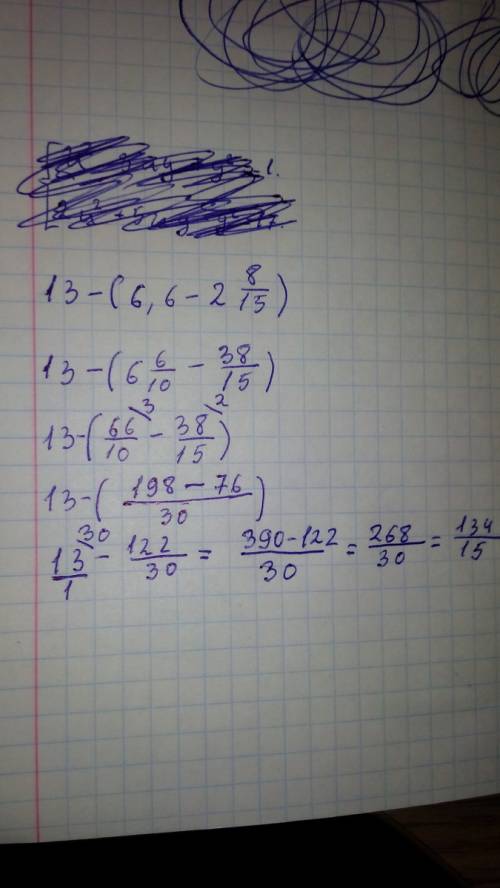 13-(6,6-2 8/15)
13-(6 6/10 - 38/15)
13-(66/10 ³ - 38/15 ²)
13-( (198-76)/30 )
13/1 ³⁰ - 122/30 = (390-122)/30 = 268/30 = 134/15